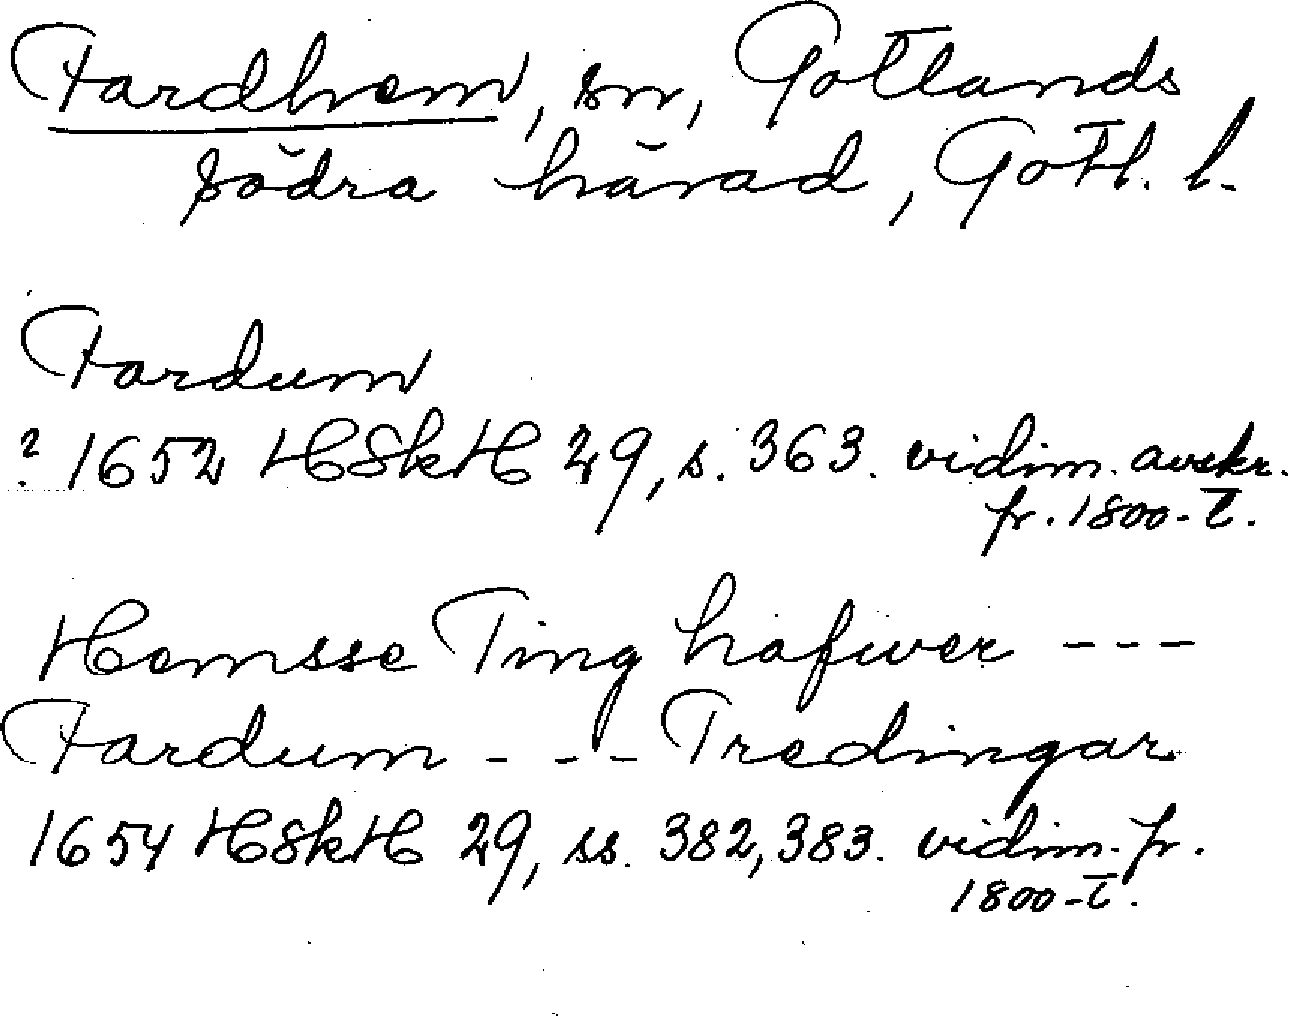 Fardhem, sn, Gotlands
södra härad, Gotl. l.
Fardum
? 1652 HSkH 29, s. 363. vidim. avskr.
fr. 1800-t.
Hemsse Ting hafwer ---
Fardum --- Tredingar
1654 HSkH 29, ss. 382, 383. vidim. fr.
1800-t.